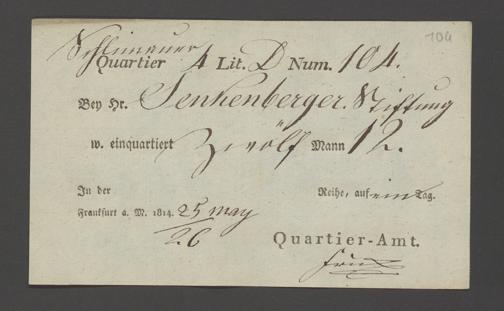 104
Quartier 4 Lit. D Num. 104.
Bey Hr. Senkenberger. Stiftung
w. einquartiert Zwölf Mann 12.
In der Reihe, auf ein Tag.
Frankfurt a. M. 1814. 25 may
26
Quartier-Amt.